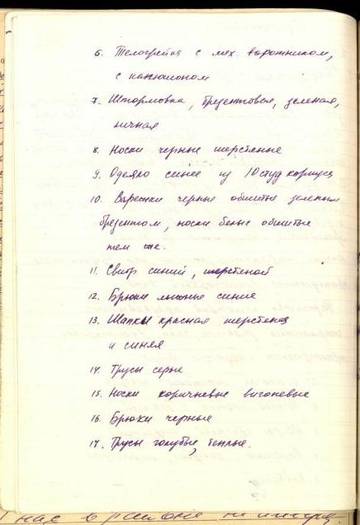 6. Телогрейка с мех. воротником,
с капюшоном
7. Штормовка, брезентовая, зеленая,
8. Носки черные шерстяные
9. Одеяло синее из 10 студ корпуса
10. Варежки черные обшитые зеленым
брезентом, носки белые обшитые
тем же.
11. Свитр синий, шерстяной
12. Брюки лыжные синие
13. Шапки красная шерстяная
и синяя
14. Трусы серые
15. Носки коричневые вигоневые
16. Брюки черные
17. Трусы голубые, теплые.